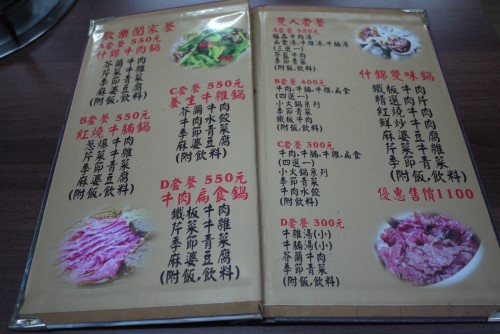 歡樂闔家餐
A套餐 550元
什錦牛肉鍋
芥蘭牛肉
芹菜牛雜
季節青菜
麻婆豆腐
(附飯,飲料)
B套餐 550元
紅燒牛腩鍋
蔥爆牛肉
芹菜牛雜
季節青菜
麻婆豆腐
(附飯,飲料)
C套餐 550元
養生牛雜鍋
芥蘭牛肉
牛肉水餃
季節青菜
麻婆豆腐
(附飯,飲料)
D套餐 550元
牛肉扁食鍋
鐵板牛肉
芹菜牛雜
季節青菜
麻婆豆腐
(附飯,飲料)
雙人套餐
A套餐 350元
(三選一)
芥蘭牛肉
季節青菜
(附飯,飲料)
B套餐 400元
牛肉,牛腩,牛雜,扁食
(四選一)
小火鍋系列
季節青菜
鐵板牛肉
C套餐 300元
牛肉,牛腩,牛雜,扁食
(四選一)
小火鍋系列
季節青菜
牛肉水餃
D套餐 300元
牛雜湯(小)
牛腩湯(小)
芥蘭牛肉
季節青菜
(附飯,飲料)
什錦雙味鍋
鐵板牛肉
精選肉片
紅燒牛腩
鮮炒牛肉
麻婆豆腐
芹菜牛雜
季節青菜
(附飯,飲料)
優惠售價1100